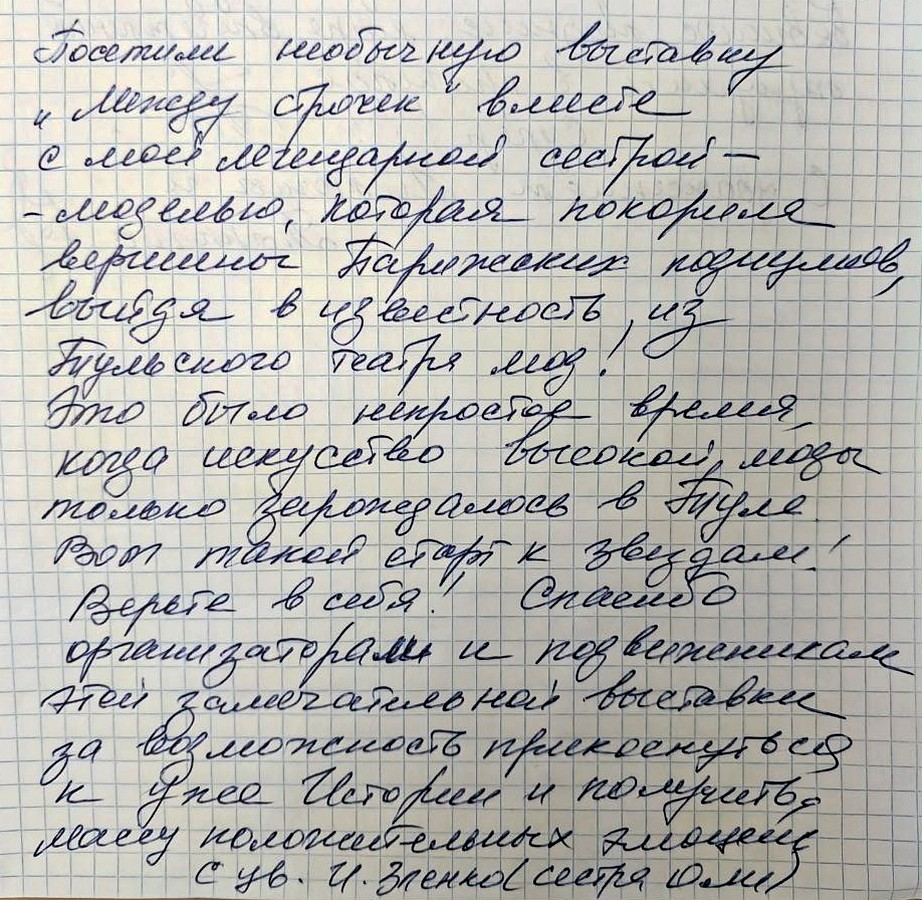 Посетили необычную выставку
„Между строчек" вместе
с моей легендарной сестрой –
– моделью, которая покорила
вершины Парижских подиумов,
выйдя в известность из
Тульского театра мод!
Это было непростое время,
когда искусство высокой моды
только зарождалось в Туле.
Вот такой старт к звездам!
Верьте в себя! Спасибо
организаторам и подвижникам
этой замечательной выставки
за возможность прикоснуться
к уже Истории и получить
массу положительных эмоций
С ув. И. Зленко (сестра Юли)